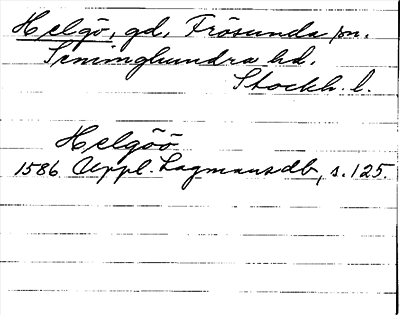 Helgö, gd, Frösunda sn.
Seminghundra hd.
Stockh. l.
Helgöö
1586 Uppl. Lagmansdb, s. 125.